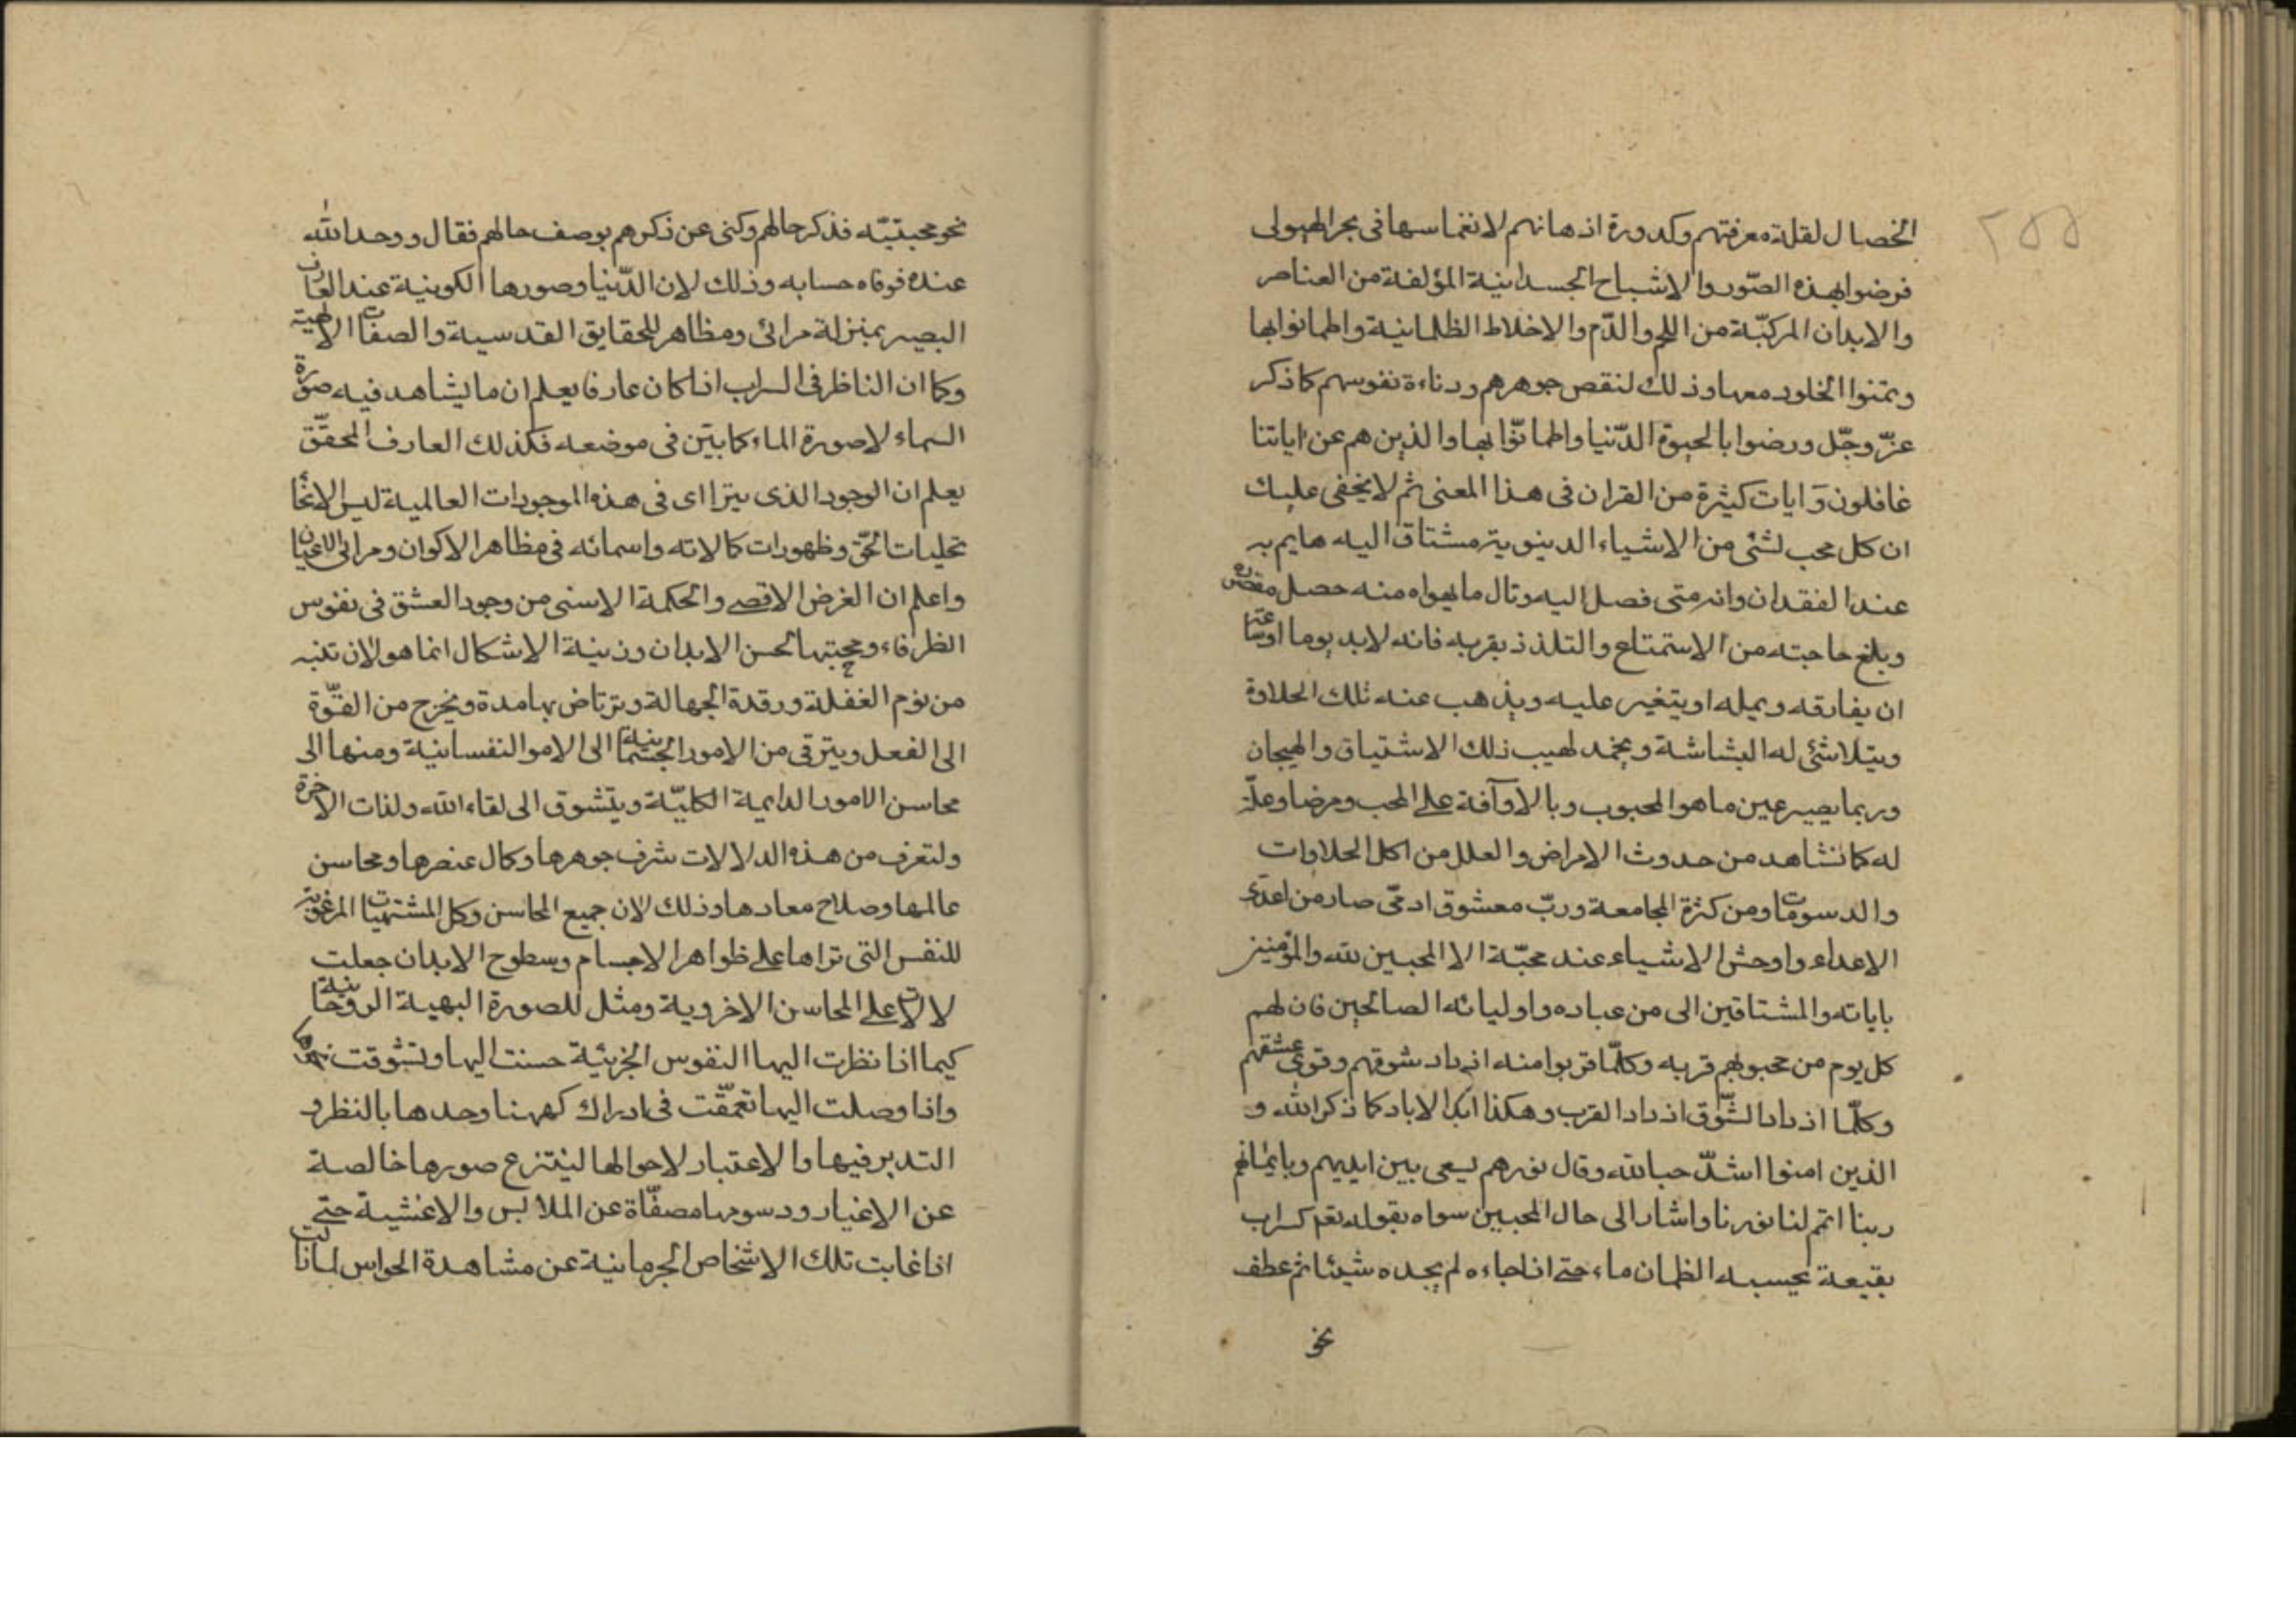 ٢٥٥
الخصال لقلة معرفتهم وكدورة اذهانهم لانغماسها فى بحر الهيولى
فرضوا بهذه الصّور والاشباح الجسدانية المؤلفة من العناصر
والابدان المركبّة من اللحم والدّم والاخلاط الظلمانية واطمانوا بها
وتمنوا الخلود معها وذلك لنقص جوهرهم ودناءة نفوسهم كما ذكر
عزّ وجّل ورضوا بالحيوة الدّنيا واطمانّوا بها والذين هم عن اياتنا
غافلون وَايات كثيرة من القران فى هذا المعنى ثم لا يخفى عليك
ان كل محب لشئ من الاشياء الدينوية مشتاق اليه هايم به
عند الفقدان وانه متى فصل اليه ونال ما يهواه منه حصل مقصده
وبلغ حاجته من الاستمتاع والتلذذ بقربه فانه لابد يوما او ساعة
ان يفارقه ويمله او يتغير عليه ويذهب عنه تلك الحلاوة
ويتلاشئ له البشاشة ويخمد لهيب ذلك الاشتياق والهيجان
وربما يصير عين ما هو المحبوب وبالا وآفة على المحب ومرضا وعلّة
له كما نشاهد من حدوث الامراض والعلل من اكل الحلاوات
والدسومات ومن كثرة المجامعة وربّ معشوق ادمّى صار من اعدى
الاعداء واوحش الاشياء عند محبّة الا المحبين لله والمؤمنين
باياته والمشتاقين الى من عباده واوليائه الصالحين فان لهم
كل يوم من محبوبهم قربه وكلّما قربوا منه ازداد شوقهم وقوى عشقهم
وكلّما ازداد الشّوق ازداد القرب وهكذا ابد الاباد كما ذكر الله و
الذين امنوا اشدّ حبا لله وقال نورهم يسعى بين ايديهم وبايمانهم
ربنا اتمم لنا نورنا واشار الى حال المحبين سواه بقوله تعم كسراب
بقيعة يحسبه الظمان ماء حتى اذا جاءه لم يجده شيئا ثم عطف
نحو
نحو محبتيّه فذكر حالهم وكنى عن ذكرهم بوصف حالهم فقال ووجد الله
عنده فوفاه حسابه وذلك لان الدّنيا وصورها الكونية عند العارف
البصير بمنزلة مرائى ومظاهر للحقايق القدسية والصفات الالهية
وكما ان الناظر فى السراب اذا كان عارفا يعلم ان ما يشاهد فيه صورة
السماء لا صورة الماء كما بيّن فى موضعه فكذلك العارف المحقّق
يعلم ان الوجود الذى يترااى فى هذه الموجودات العالمية ليس الا انحا
تجليات الحقّ وظهورات كمالاته واسمائه فى مظاهر الاكوان ومرائى الاعيان
واعلم ان الغرض الاقصى والحكمة الاسنى من وجود العشق فى نفوس
الظرفاء ومحبتها لحسن الابدان وزينة الاشكال انما هو لان تنبه
من نوم الغفلة ورقدة الجهالة وترتاض بها مدة ويخرج من القوّة
الى الفعل ويترقى من الامور الجسمانية الى الامو النفسانية ومنها الى
محاسن الامور الدايمة الكليّة ويتشوق الى لقاء الله ولذات الاخرة
ولتعرف من هذه الدلالات شرف جوهرها وكمال عنصرها ومحاسن
عالمها وصلاح معادها وذلك لان جميع المحاسن وكل المشتهيات المرغوبة
للنفس التى تراها على ظواهر الاجسام وسطوح الابدان جعلت
لالات على المحاسن الاخروية ومثل للصورة البهية الروحانية
كيما اذا نظرت اليها النفوس الجزئية حسنت اليها وتشوقت نحوها
واذا وصلت اليها تعمّقت فى ادراك كهنها وحدها بالنظر و
التدبر فيها والاعتبار لاحوالها لينتزع صورها خالصة
عن الاغيار ورسومها مصفّاة عن الملابس والاغشية حتى
اذا غابت تلك الاشخاص الجرمانية عن مشاهدة الحواس لها